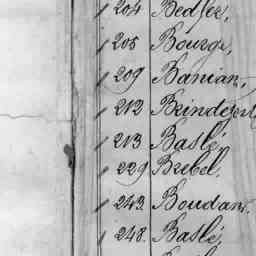 204 Bedfer,
205 Bourge,
209 Banian,
212
213 Baslé,
229 Brebel,
243. Boudant.
248. Baslé,